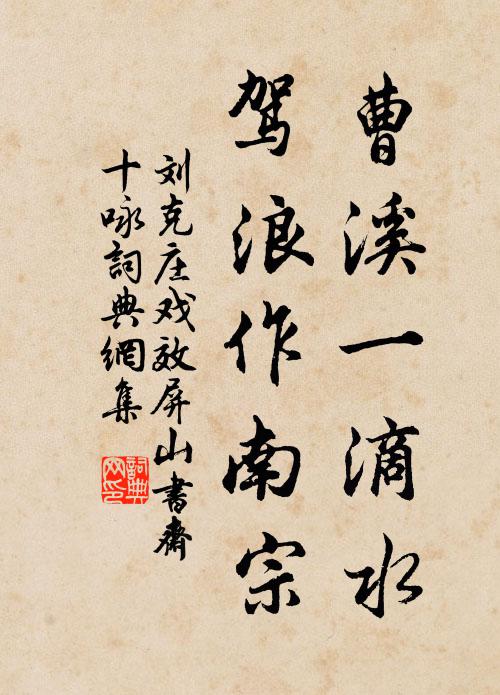 曹溪一滴水
驾浪作南宗
刘克庄戏效屏山书斋
十咏詞典網集
詞典
网印